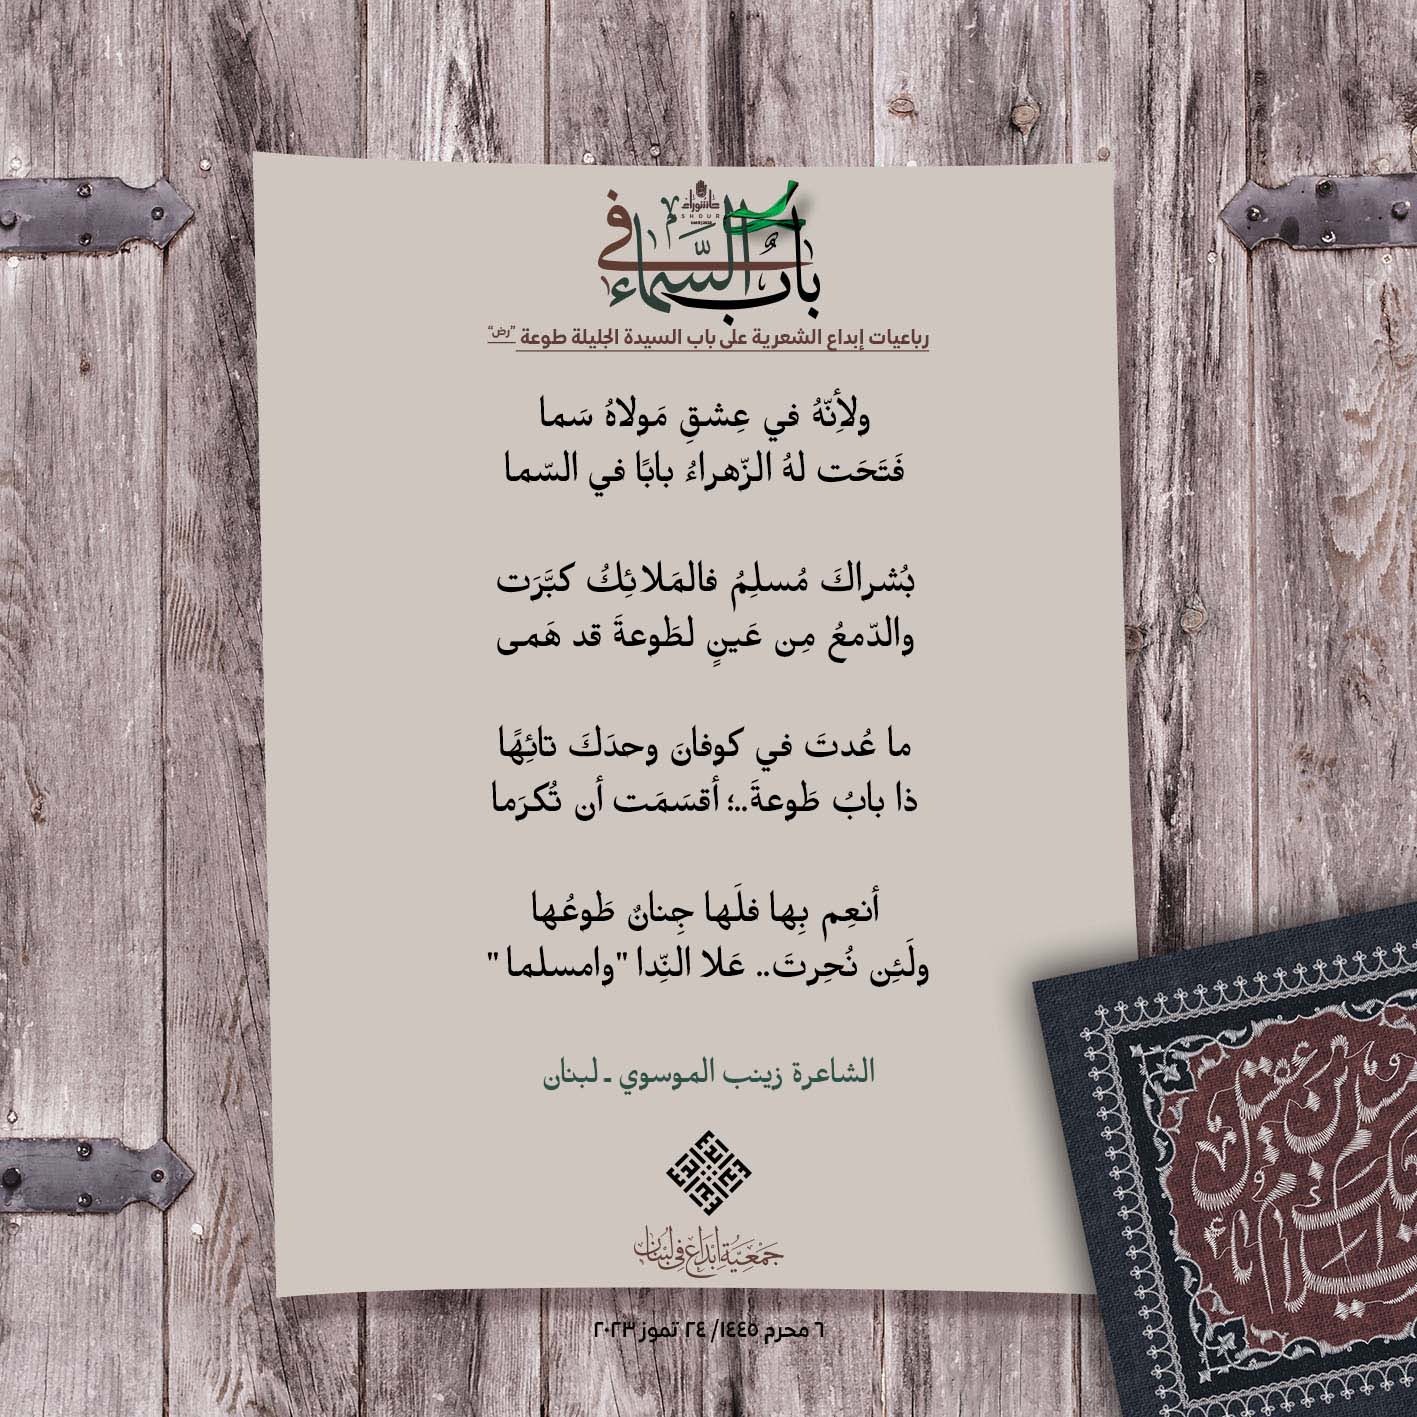 عاشوراء
باب في السَّماء
رباعيات إبداع الشعرية على باب السيدة الجليلة طوعة "رض"
ولأِنّهُ في عِشقِ مَولاهُ سَما
فَتَحَت لهُ الزّهراءُ بابًا في السّما
بُشراكَ مُسلِمُ فالمَلائِكُ كبَّرَت
والدّمعُ مِن عَينٍ لطَوعةَ قد هَمى
ما عُدتَ في كوفانَ وحدَكَ تائِهًا
ذا بابُ طَوعةَ..؛ أقسَمَت أن تُكرَما
أنعِم بِها فلَها جِنانٌ طَوعُها
ولَئِن نُحِرتَ.. عَلا النِّدا "وامسلما "
الشاعرة زينب الموسوي ـ لبنان
جَمْعِيَّةُ إبْدَاع فِي لُبْنَان
٦ محرم ١٤٤٥/ ٢٤ تموز ٢٠٢٣